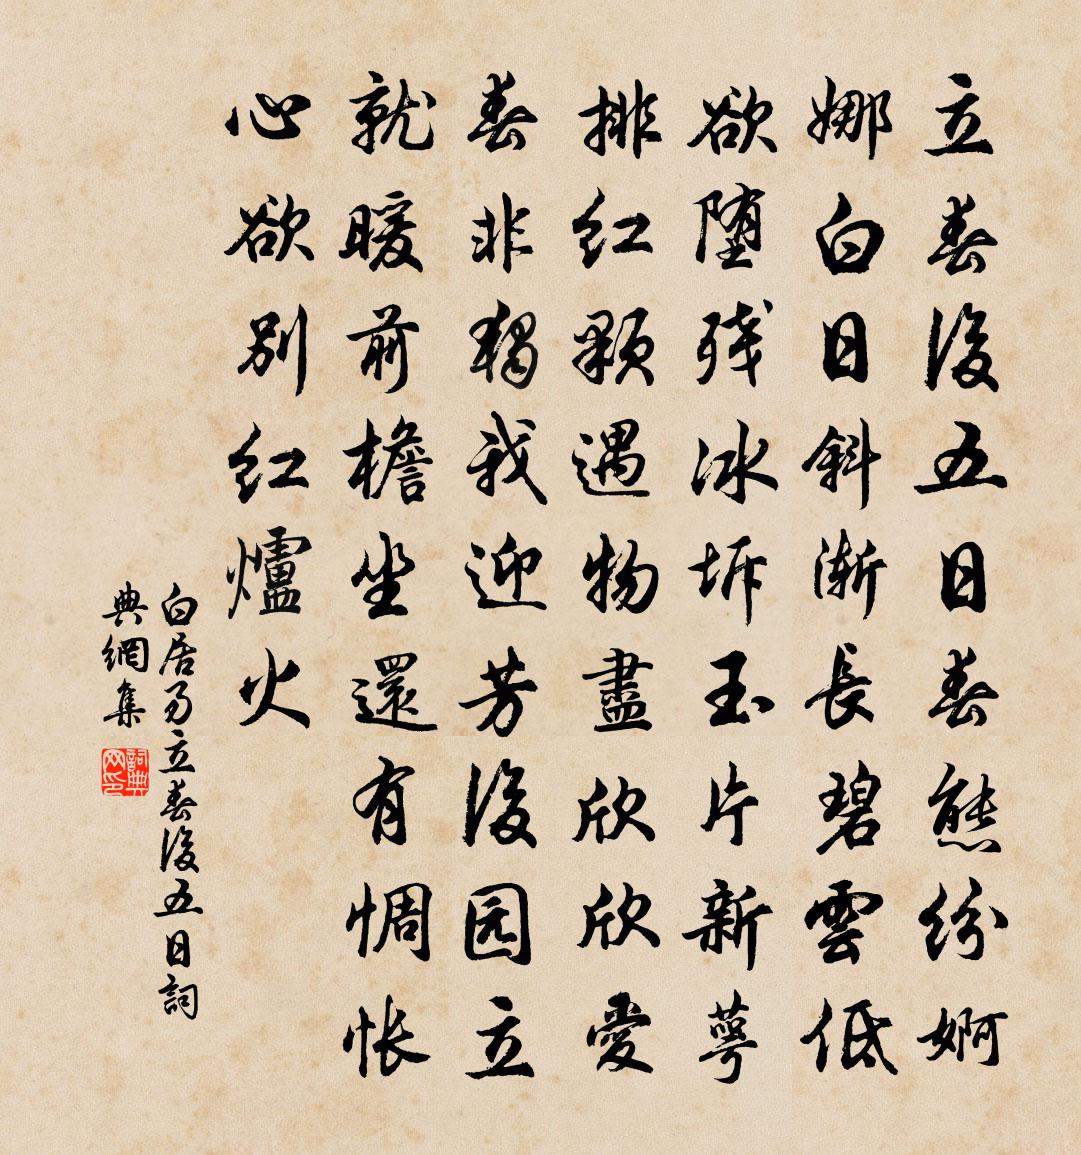 立春後五日春態紛婀
娜白日斜漸長碧雲低
欲堕残冰坼玉片新萼
排红顆遇物盡欣欣愛
春非獨我迎芳後园立
就暖前檐坐還有惆怅
心欲别红爐火
白居易立春後五日詞
典網集
詞典
网印